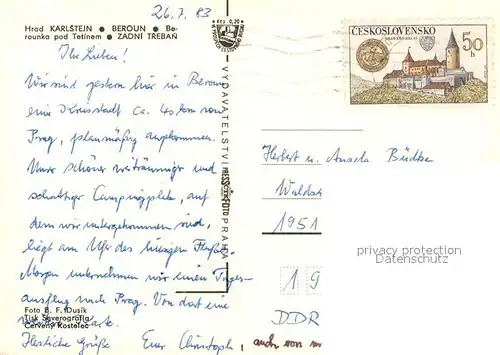 26.7.83
Hrad KARLŠTEJN ● BEROUN ● Be-
rounka pod Tetínem ● ZADNI TŘEBAŇ
Ihr Lieben!
Wir sind gestern hier in Beroun
eine Kreisstadt ca. 40 km von
Prag, planmäßig angekommen.
Unser schöner weiträumiger und
schattiger Campingplatz, auf
dem wir untergekommen sind,
liegt am Ufer des hiesigen Flußes
Morgen unternehmen wir einen Tages-
ausflug nach Prag. Von dort eine
Karte.
Herzliche Grüße Euer Christoph
auch von
Foto B. F. Dusík
Tisk Severografia
Červený Kostelec
Kčs 0,20
VYDAVATELSTVÍ PRESSFOTO PRAHA
ČESKOSLOVENSKO
50 h
Herbert u. Angela Büdke
1951
19
DDR
privacy protection
Datenschutz